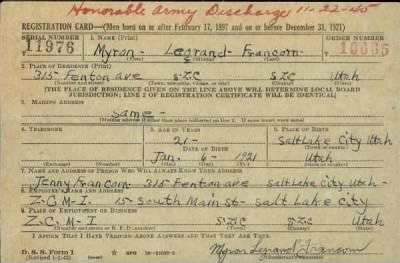 Honorable Army Discharge 11-22-45
REGISTRATION CARD—(Men born on or after February 17, 1897 and on or before December 31, 1921)
SERIAL NUMBER 1. NAME (Print) ORDER NUMBER
11976 Myron - Legrand Francom 10665
(First) (Middle) (Last)
2. PLACE OF RESIDENCE (Print)
315 Fenton ave S.L.C S.L.C Utah
(Number and street) (Town, township, village, or city) (County) (State)
[THE PLACE OF RESIDENCE GIVEN ON THE LINE ABOVE WILL DETERMINE LOCAL BOARD
JURISDICTION; LINE 2 OF REGISTRATION CERTIFICATE WILL BE IDENTICAL]
3. MAILING ADDRESS
Same -
[Mailing address if other than place indicated on line 2. If same insert word same]
4. TELEPHONE 5. AGE IN YEARS 6. PLACE OF BIRTH
21 - Salt Lake City Utah
DATE OF BIRTH (Town or county)
Jan. 6 - 1921 Utah
(Exchange) (Number) (Mo.) (Day) (Yr.) (State or country)
7. NAME AND ADDRESS OF PERSON WHO WILL ALWAYS KNOW YOUR ADDRESS
Jenny Francom - 315 Fenton ave Salt Lake City Utah -
8. EMPLOYER'S NAME AND ADDRESS
Z.C.M.I - 15 South Main St - Salt Lake City
9. PLACE OF EMPLOYMENT OR BUSINESS
Z.C.M-I S.L.C S.L.C Utah
(Number and street or R. F. D. number) (Town) (County) (State)
I AFFIRM THAT I HAVE VERIFIED ABOVE ANSWERS AND THAT THEY ARE TRUE.
D. S. S. Form 1 Myron Legrand Francom
(Revised 1-1-42) GPO 16-21630-2